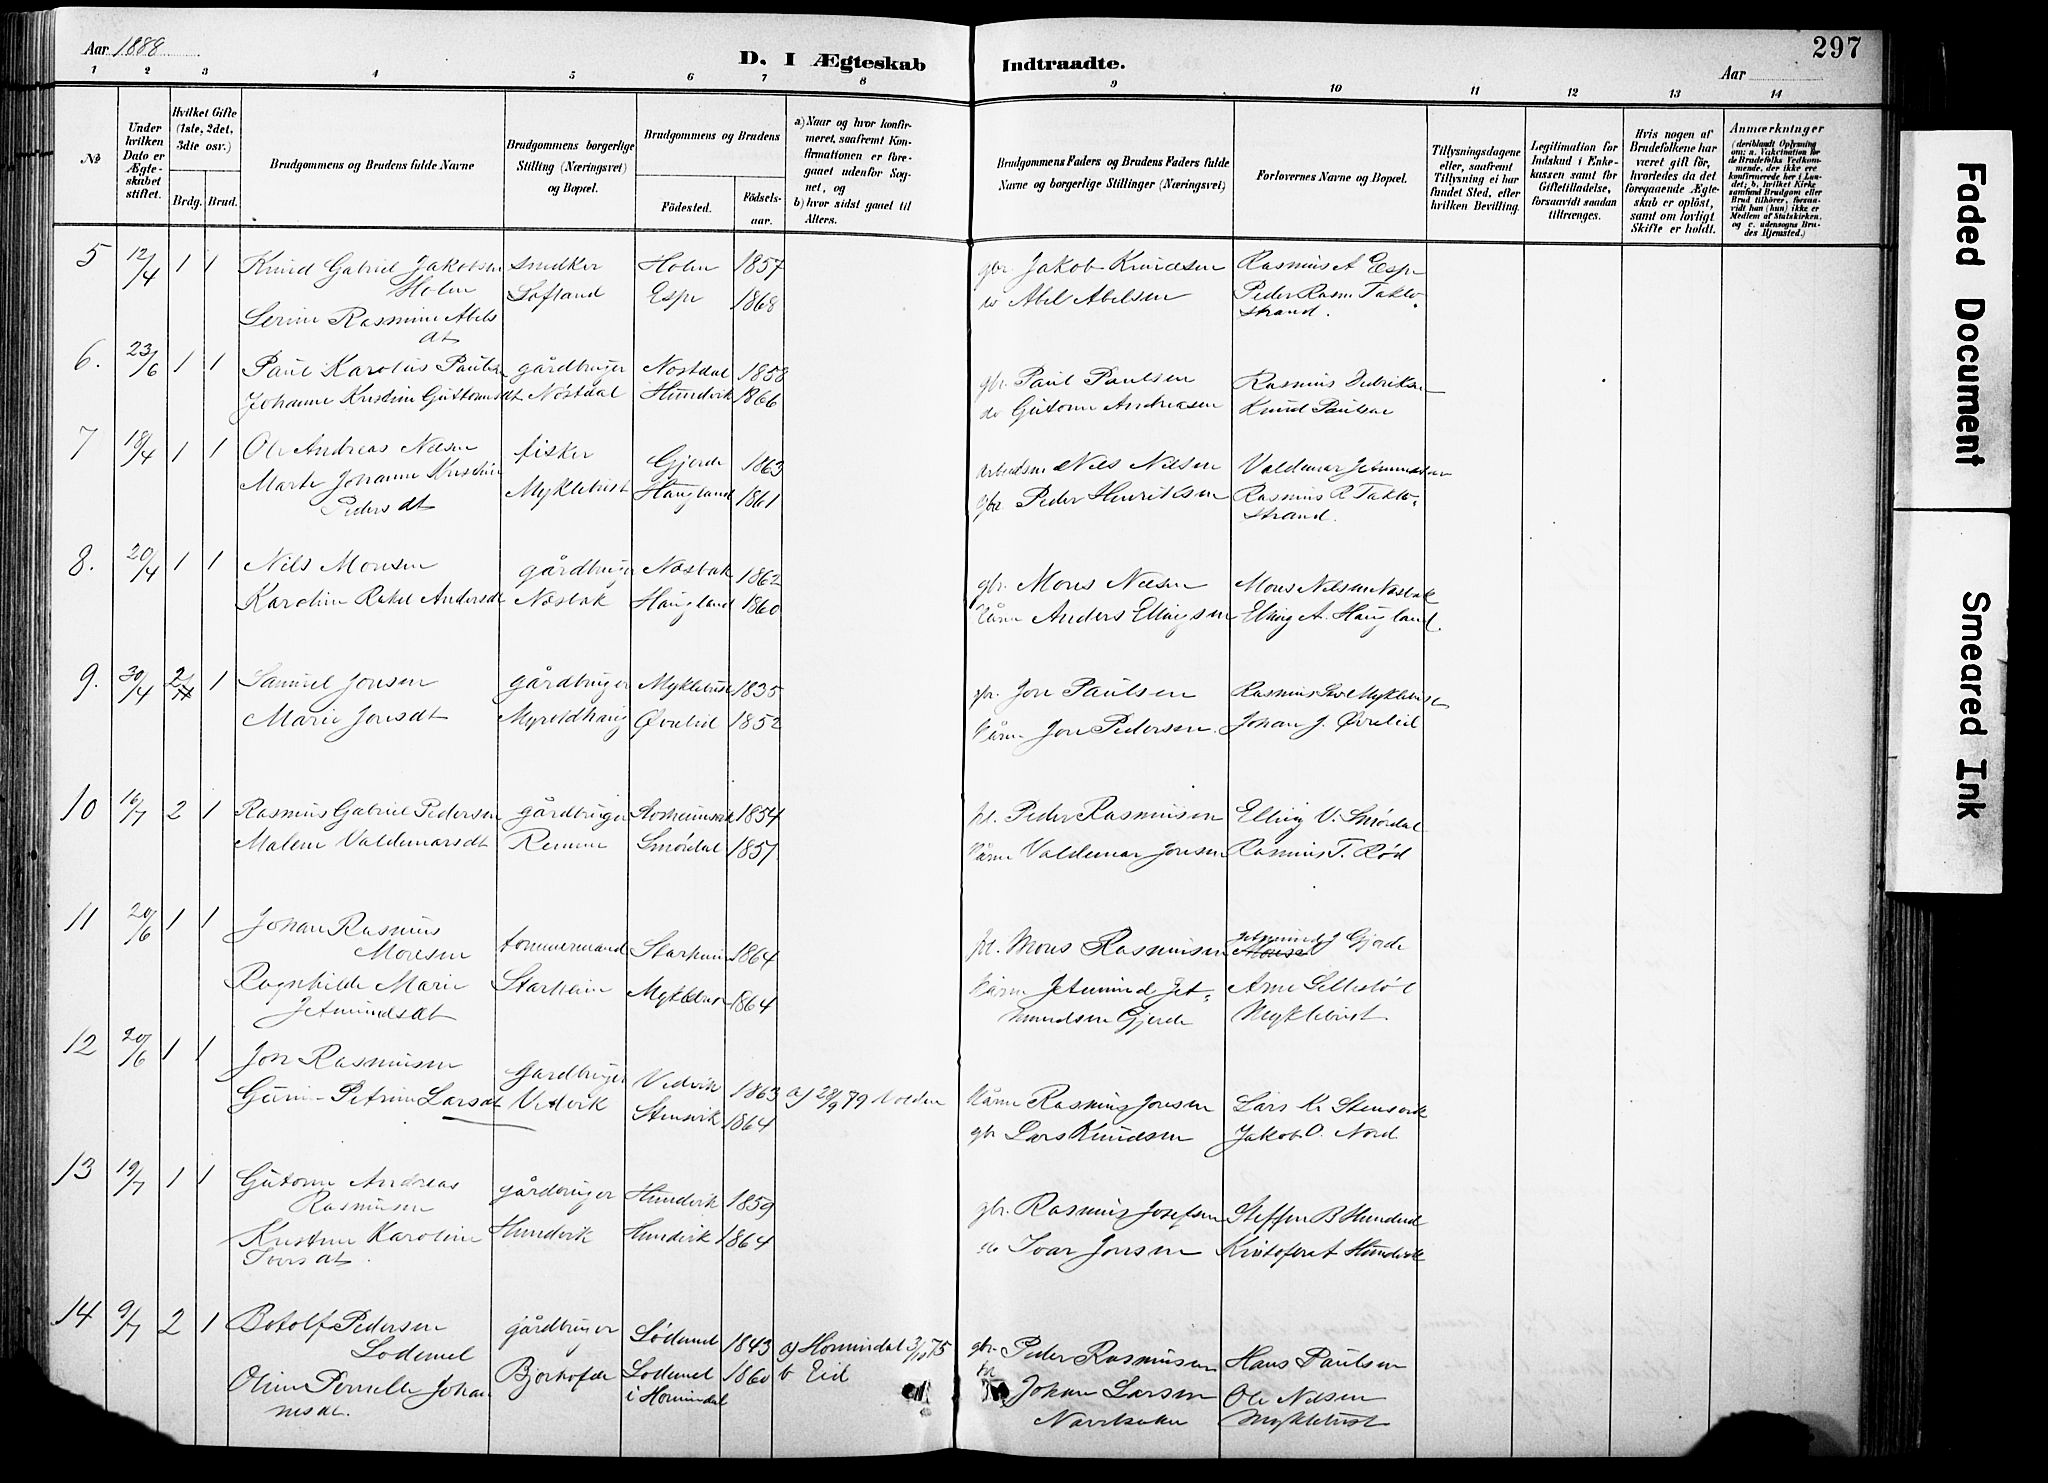 Aar 1888
D. I Ægteskab Indtraadte.
Aar
297
1 2 3 4 5 6 7 8 9 10 11 12 13 14
№
Under hvilken Dato er Ægteskabet stiftet.
Hvilket Gifte (1ste, 2det, 3die osv.)
Brdg. Brud.
Brudgommens og Brudens fulde Navne
Brudgommens borgerlige Stilling (Næringsvei) og Bopæl.
Brudgommens og Brudens
Fødested.
Fødselsaar.
a) Naar og hvor konfirmeret, saafremt Konfirmationen er foregaaet udenfor Sognet, og
b) hvor sidst gaaet til Alters.
Brudgommens Faders og Brudens Faders fulde Navne og borgerlige Stillinger (Næringsvei)
Forlovernes Navne og Bopæl.
Tillysningsdagene eller, saafremt Tillysning ei har fundet Sted, efter hvilken Bevilling.
Legitimation for Indskud i Enkekassen samt for Giftetilladelse, forsaavidt saadan tiltrænges.
Hvis nogen af Brudefolkene har været gift før, hvorledes da det foregaaende Ægteskab er opløst, samt om lovligt Skifte er holdt.
Anmærkninger (deriblandt Oplysning om: a. Vakcination for de Brudefolks Vedkommende, der ikke ere konfirmerede her i Landet; b. hvilket Kirkesamfund Brudgom eller Brud tilhører, forsaavidt han (hun) ikke er Medlem af Statskirken, og c. udensogns Brudes Hjemsted.)
5 12/4 1 1 Knud Gabriel Jakobsen smidker Holm 1857 gbr. Jakob Knudsen Rasmus A Espe
Holm Løfland Espe 1868 do Abel Abelsen Peder Rasm Taklo-
Serine Rasmine Abels strand.
dt
6. 23/6 1 1 Paul Karolus Paulsen gårdbruger Nøstdal 1858 gbr. Paul Paulsen Rasmus Didriksen
Johanne Kristine Guttormsdt Nøstdal Hundvik 1866 do Gutorm Andreasen Knud Paulsen
7 18/4 1 1 Ole Andreas Nilsen fisker Gjerde 1863 arbeidsm Nils Nilsen Valdemar Jetmundsen
Marte Johanne Kristine Myklebust Haugland 1861 gbr. Peder Henriksen Rasmus R Taklo-
Pedersdt strand.
8. 20/4 1 1 Nils Monsen gårdbruger Næsbak 1862 gbr. Mons Nilsen Mons Nilsen Næsbak
Karoline Rakel Andersdt Næsbak Haugland 1860 kårm Anders Ellingsen Elling A. Haugland.
9. 30/4 2 1 Samuel Jonsen gårdbruger Myklebust 1835 Jon Paulsen Rasmus Myklebust
Marie Jonsdt Myroldhaug Øvrelid 1852 kårm Jon Pedersen Johan J. Øvrelid
10 16/7 2 1 Rasmus Gabriel Pedersen gårdbruger Aarheimsvik 1854 Peder Rasmusen Elling V. Smørdal
Malene Valdemarsdt Remme Smørdal 1857 kårm Valdemar Jonsen Rasmus T. Rød
11 20/6 1 1 Johan Rasmus tømmermand Starheim 1864 Mons Rasmusen Jetmund J Gjerde
Monsen
Ragnhilde Marie Starheim Myklebust 1864 kårm Jetmund Jet- Arne
Jetmundsdt mundsen Gjerde Myklebust
12 20/6 1 1 Jon Rasmusen Gårdbruger Vedvik 1863 a) 28/9 79 Volden kårm Rasmus Jonsen Lars Kr Stensvik
Petrine Larsdt Vedvik Stensvik 1864 gbr Lars Knudsen Jakob O. Nord
13 19/7 1 1 Gutorm Andreas gårdbruger Hundvik 1859 gbr. Rasmus Josefsen Steffen B Hundvik
Rasmusen
Kristine Karoline Hundvik Hundvik 1864 do Ivar Jonsen Kristofer A Hundvik
Iversdt.
14 9/7 2 1 Botolf Pedersen gårdbruger Lødemel 1843 a) Hornindal 3/10 75 gbr. Peder Rasmusen Hans Paulsen
Lødemel Bjørhofde Lødemel 1860 b Eid Johan Larsen Ole Nilsen
Oline Pernelle Johan i Hornindal Navelsaker Myklebust
nesdt.
Faded Document
Smeared Ink